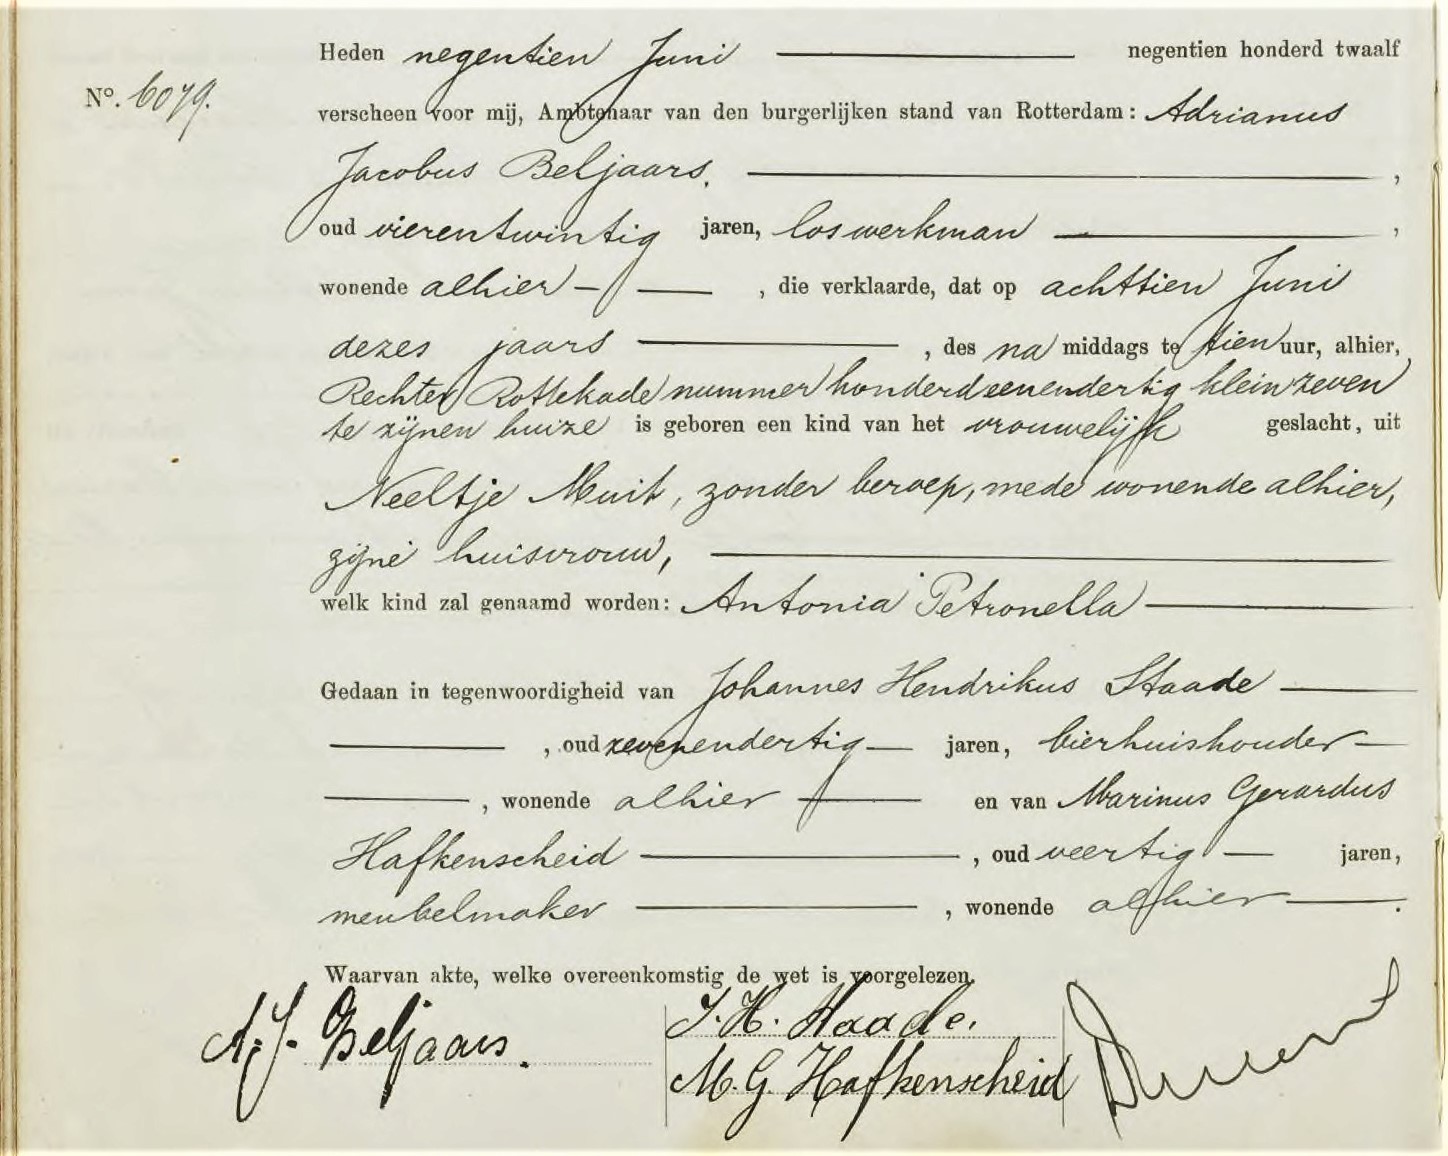 Heden negentien Juni negentien honderd twaalf
No. 6079.
verscheen voor mij, Ambtenaar van den burgerlijken stand van Rotterdam: Adrianus
Jacobus Beljaars,
oud vierentwintig jaren, loswerkman,
wonende alhier, die verklaarde, dat op achttien Juni
dezes jaars, des na middags te tien uur, alhier,
Rechter Rottekade nummer honderdeenendertig klein zeven
te zijnen huize is geboren een kind van het vrouwelijk geslacht, uit
Neeltje Muit, zonder beroep, mede wonende alhier,
zijne huisvrouw,
welk kind zal genaamd worden: Antonia Petronella
Gedaan in tegenwoordigheid van Johannes Hendrikus Staade
, oud zevenendertig jaren, bierhuishouder
, wonende alhier en van Marinus Gerardus
Hafkenscheid, oud veertig jaren,
meubelmaker, wonende alhier.
Waarvan akte, welke overeenkomstig de wet is voorgelezen.
A. J. Beljaars.
J. H. Staade.
M. G. Hafkenscheid